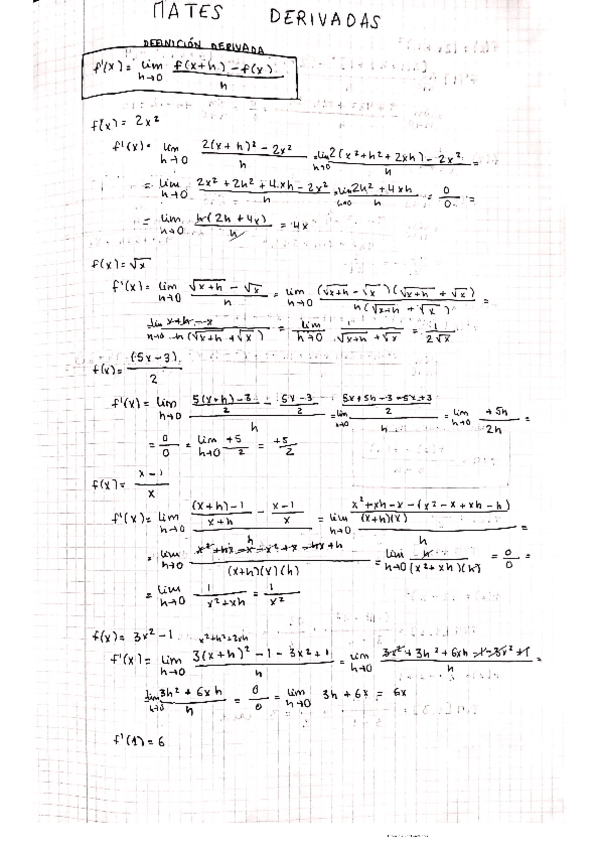 MATES DERIVADAS
DEFINICIÓN DERIVADA
f'(x) = lim h→0 (f(x+h) - f(x)) / h
f(x) = 2x²
f'(x) = lim h→0 (2(x+h)² - 2x²) / h = lim h→0 (2(x²+h²+2xh) - 2x²) / h =
= lim h→0 (2x² + 2h² + 4xh - 2x²) / h = lim h→0 (2h² + 4xh) / h = 0/0 =
= lim h→0 h(2h + 4x) / h = 4x
f(x) = √x
f'(x) = lim h→0 (√x+h - √x) / h = lim h→0 (√x+h - √x)(√x+h + √x) / h(√x+h + √x) =
lim h→0 (x+h-x) / h(√x+h + √x) = lim h→0 1 / (√x+h + √x) = 1 / 2√x
f(x) = (5x-3) / 2
f'(x) = lim h→0 ((5(x+h)-3)/2 - (5x-3)/2) / h = lim h→0 ((5x+5h-3-5x+3)/2) / h = lim h→0 +5h / 2h =
= 0/0 = lim h→0 +5/2 = +5/2
f(x) = (x-1) / x
f'(x) = lim h→0 (((x+h)-1)/(x+h) - (x-1)/x) / h = lim h→0 ((x²+xh-x-(x²-x+xh-h)) / (x+h)(x)) / h =
= lim h→0 (x²+hx-x-x²+x-hx+h) / (x+h)(x)(h) = lim h→0 h / (x²+xh)(h) = 0/0 =
= lim h→0 1 / (x²+xh) = 1/x²
f(x) = 3x²-1 x²+h²+2xh
f'(x) = lim h→0 (3(x+h)² - 1 - 3x² + 1) / h = lim h→0 (3x² + 3h² + 6xh - 1 - 3x² + 1) / h =
lim h→0 (3h² + 6xh) / h = 0/0 = lim h→0 3h + 6x = 6x
f'(1) = 6